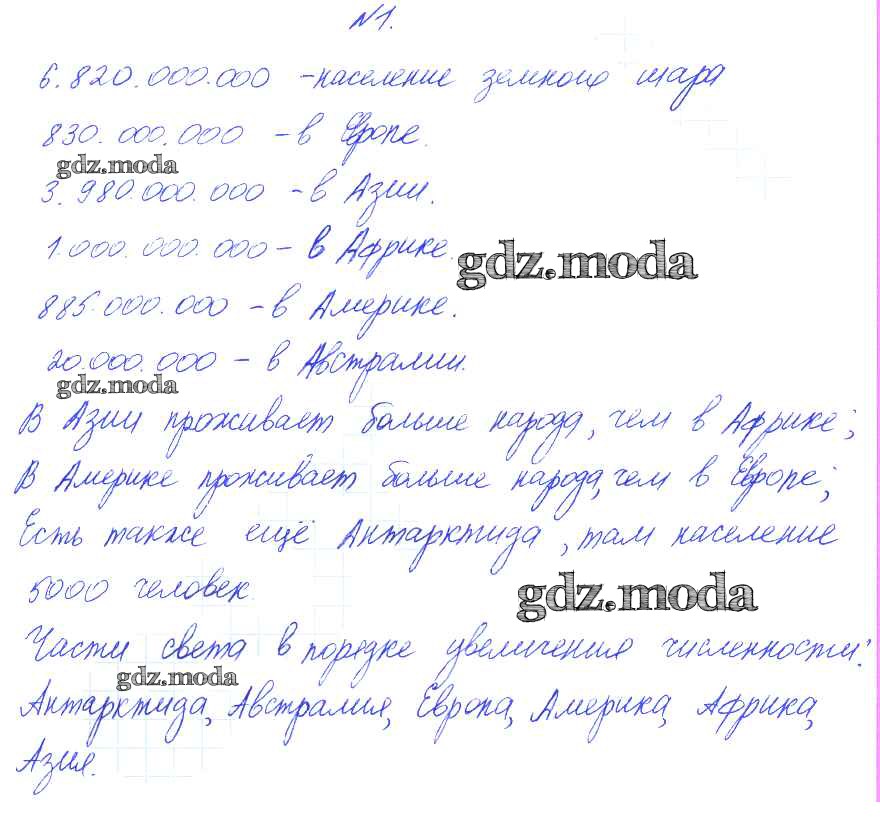 №1.
6.820.000.000 - население земного шара
830.000.000 - в Европе.
gdz.moda
3.980.000.000 - в Азии.
1.000.000.000 - в Африке.
gdz.moda
885.000.000 - в Америке.
20.000.000 - в Австралии.
gdz.moda
В Азии проживает больше народа, чем в Африке;
В Америке проживает больше народа, чем в Европе;
Есть также ещё Антарктида, там население
5000 человек.
gdz.moda
Части света в порядке увеличения численности:
gdz.moda
Антарктида, Австралия, Европа, Америка, Африка,
Азия.